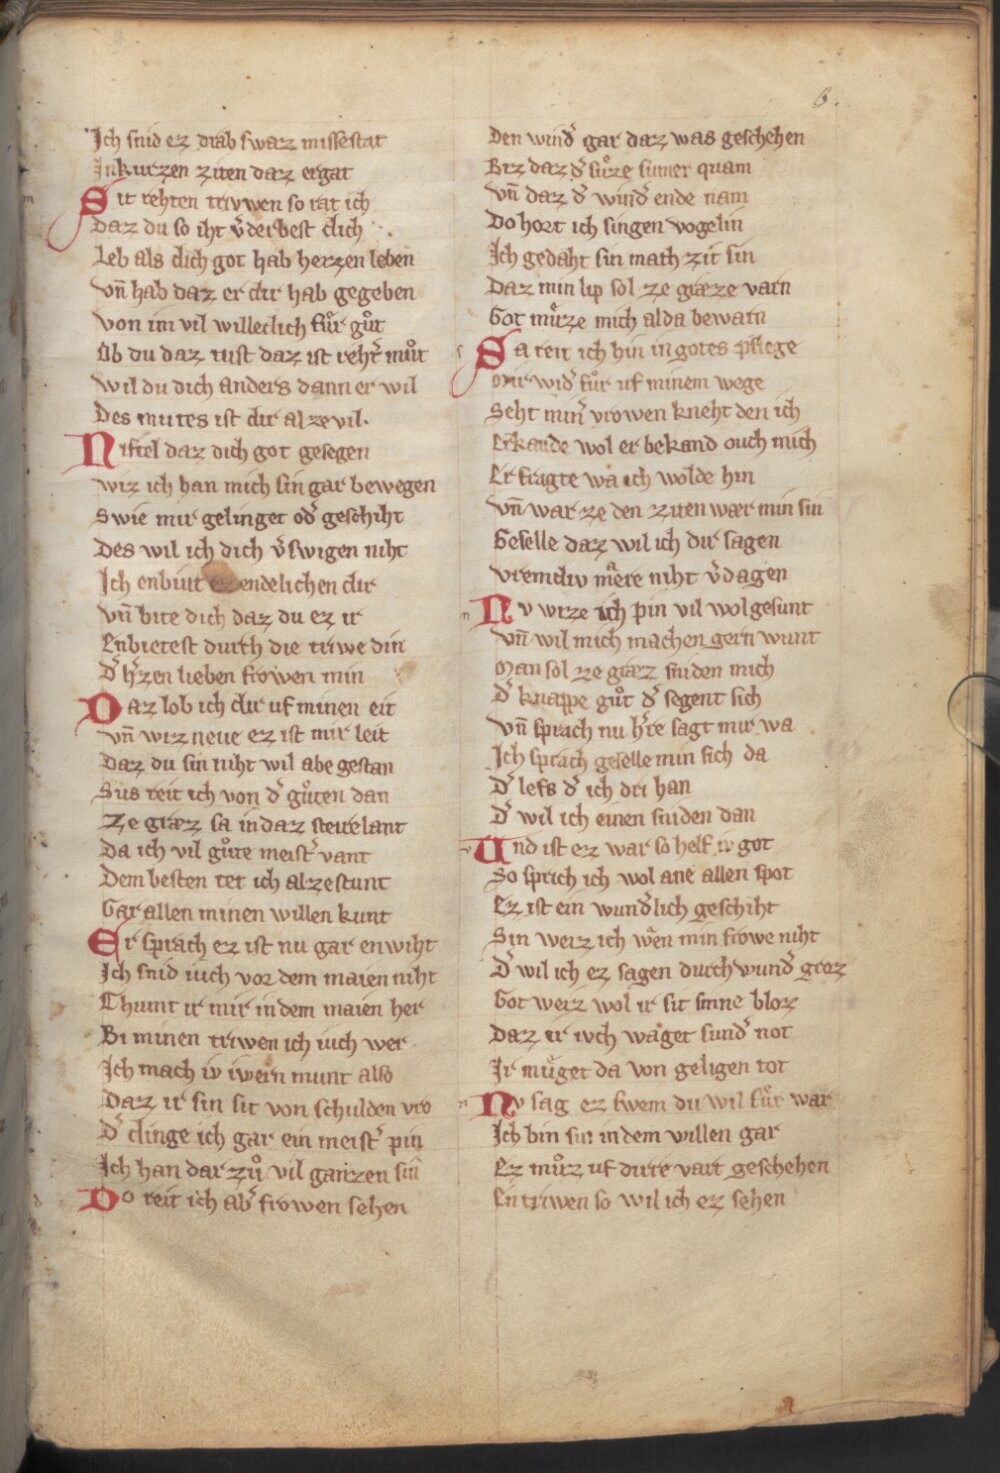 6.
Ich snid ez drab swaz missestat
In kurzen ziten daz ergat
Sit rehten triwen so rat ich
Daz du so iht v̄derbest dich
Leb als dich got hab herzen leben
Vn̄ hab daz er dir hab gegeben
Von im vil willeclich fuͦr guͦt
Ob du daz tuͦst daz ist reht̄ muͦt
Wil du dich anders dann er wil
Des mutes ist dir al ze vil.
Niftel daz dich got gesegen
Wiz ich han mich sin gar bewegen
Swie mir gelinget od̄ geschiht
Des wil ich dich v̄swigen niht
Ich enbiut ez endelichen dir
Vn̄ bite dich daz du ez ir
Enbietest durch die triwe din
D̄ h̄zen lieben frowen min
Daz lob ich dir uf minen eit
Vn̄ wiz neve ez ist mir leit
Daz du sin niht wil abe gestan
Sus reit ich von d̄ guͦten dan
Ze græz sa in daz steirelant
Da ich vil guͦte meist̄ vant
Dem besten tet ich alzestunt
Gar allen minen willen kunt
Er sprach ez ist nu gar enwiht
Ich snid iuch vor dem maien niht
Chumt ir mir in dem maien her
Bi minen triwen ich iuch wer
Ich mach iv iwern munt also
Daz ir sin sit von schulden vro
D̄ dinge ich gar ein meist̄ pin
Ich han dar zuͦ vil ganzen sin̄
Do reit ich ab̄ frowen sehen
Den wind̄ gar daz was geschehen
Biz daz d̄ suͦze sumer quam
Vn̄ daz d̄ wind̄ ende nam
Do hort ich singen vogelin
Ich gedaht sin mach zit sin
Daz min lip sol ze græze varn
Got muͤze mich alda bewarn
Sa reit ich hin in gotes pflege
Mir wid̄ fuͦr uf minem wege
Seht min̄ vrowen kneht den ich
Erkande wol er bekand ouch mich
Er fragte wa ich wolde hin
Vn̄ war ze den ziten wær min sin
Geselle daz wil ich dir sagen
Vremdiv mære niht v̄dagen
Nv wize ich pin vil wol gesunt
Vn̄ wil mich machen gern wunt
Man sol ze græz sniden mich
D̄ knappe guͦt d̄ segent sich
Vn̄ sprach nu h̄re sagt mir wa
Ich sprach geselle min sich da
D̄ lefs d̄ ich dri han
D̄ wil ich einen sniden dan
Und ist ez war so helf iv got
So sprich ich wol ane allen spot
Ez ist ein wund̄lich geschiht
Sin weiz ich wen min frowe niht
D̄ wil ich ez sagen durch wund̄ groz
Got weiz wol ir sit sinne bloz
Daz ir ivch waget sund̄ not
Ir muͤget da von geligen tot
Nv sag ez swem du wil fuͦr war
Ich bin sin in dem willen gar
Ez muͦz uf dirre vart geschehen
En triwen so wil ich ez sehen